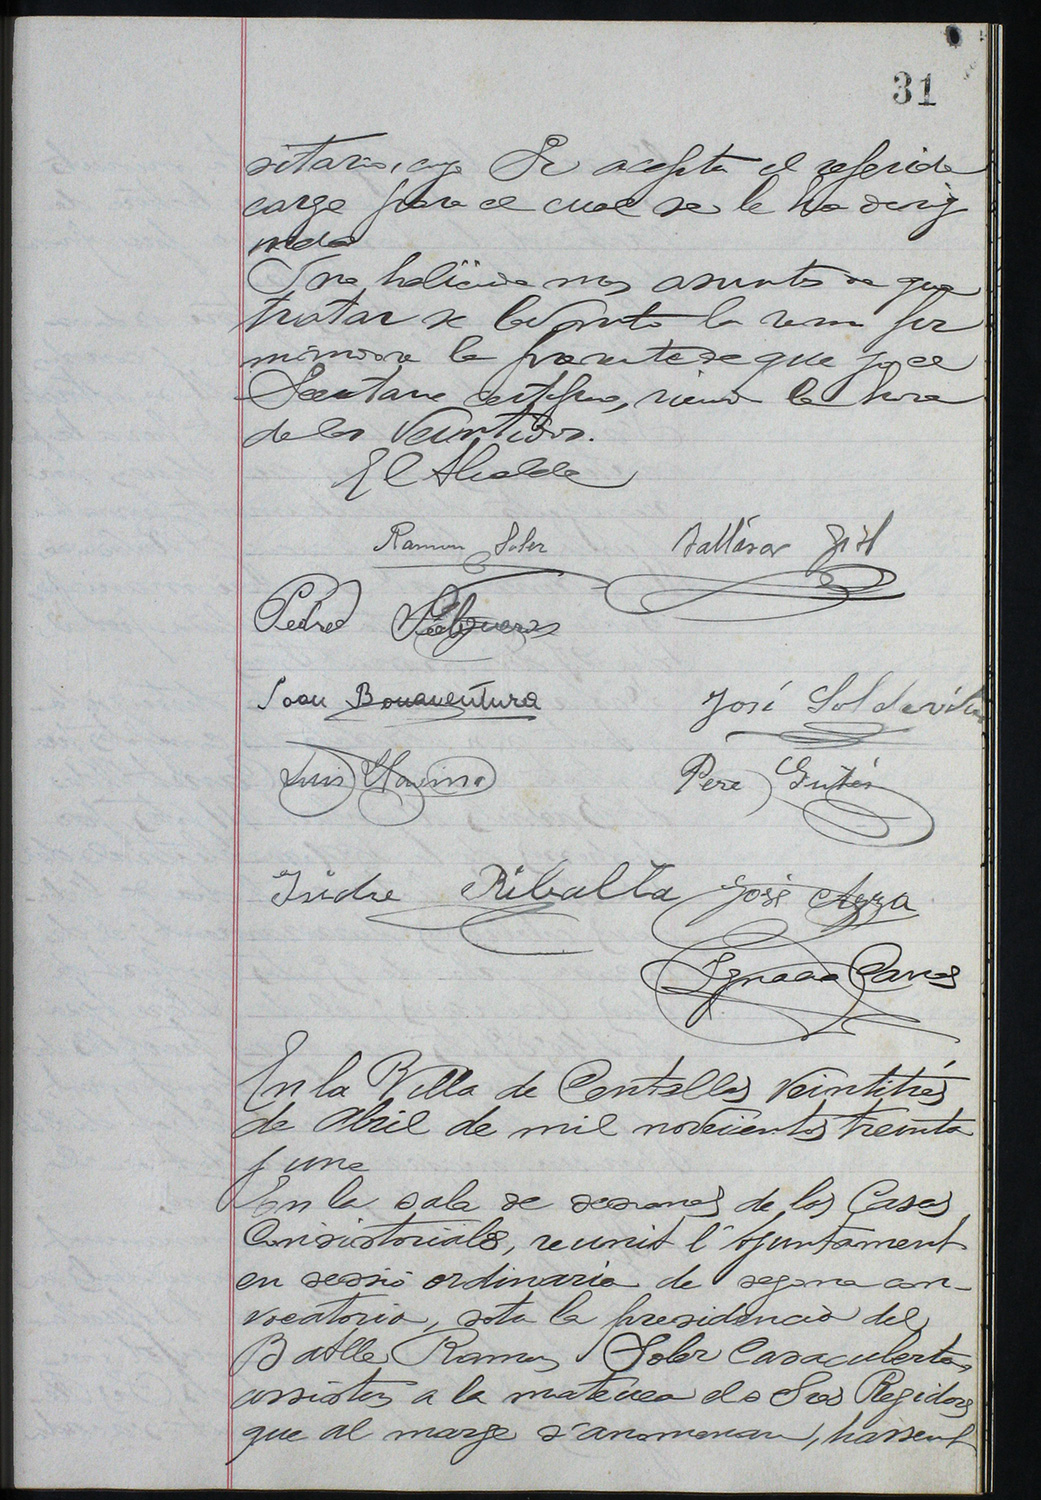 31
sitario, cuyo Sr acepta el referido
cargo para el cual se le ha desig
nado
Y no habiendo mas asuntos de que
tratar se levanta la
la presente de que yo el
Secretario certifico, siendo la hora
de las Veintidos.
El Alcalde
Ramon Soler Baltásar Gil
Pedro Falgueras
Joan Bonaventura José Soldevila
Luis
Pere
Isidre Ribalta José
Ignacio
En la Villa de Centellas veintitrés
de Abril de mil novecientos treinta
y uno
En la sala de sesiones de las Casas
Consistorials, reunit l'Ajuntament
en sessió ordinaria de segona con-
vocatoria, sota la presidencia del
Batlle Ramon Soler Casacuberta,
assistens a la mateixa els Srs Regidors
que al marge s'anomenan, havent